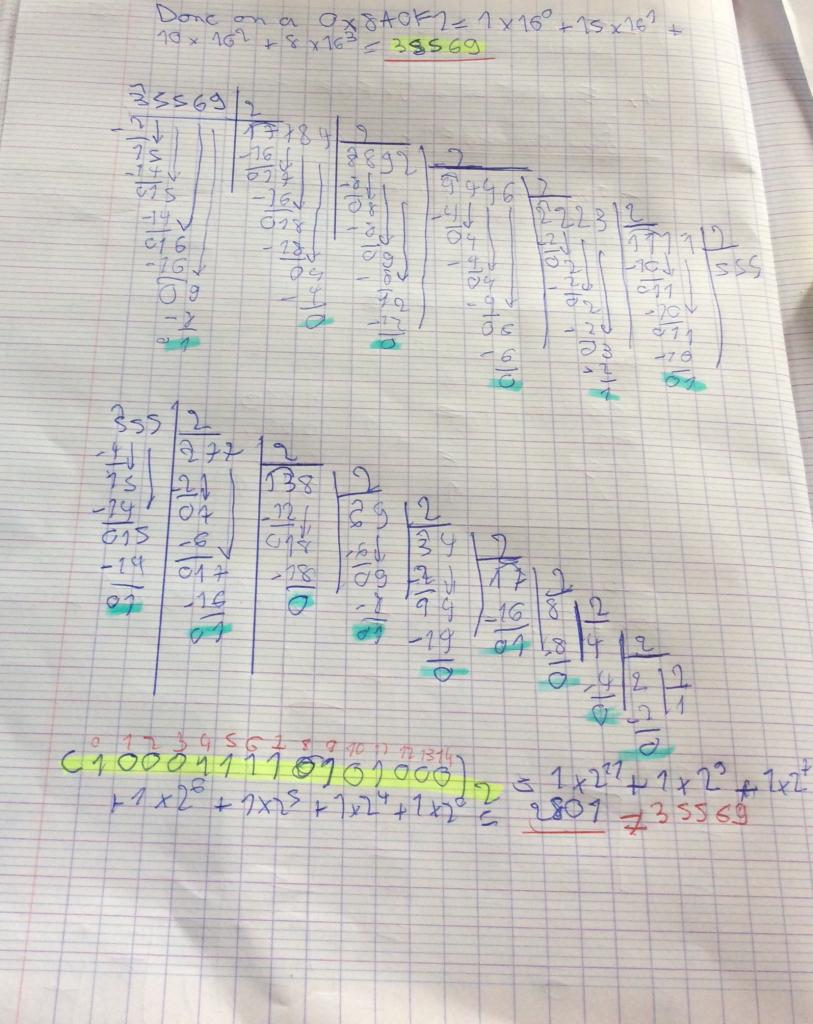 Donc on a 0x8A0F1 = 1 x 16^0 + 15 x 16^1 +
10 x 16^2 + 8 x 16^3 = 35569
35569 2
17784 2
8892 2
4446 2
2223 2
1111 2
555
-2
15
-14
015
-14
016
-16
09
-8
01
-16
017
-16
018
-18
04
-4
0
-8
08
-8
09
-8
12
-12
0
-4
04
-4
04
-4
06
-6
0
-2
02
-2
02
-2
03
-2
1
-10
011
-10
011
-10
01
555 2
277 2
138 2
69 2
34 2
17 2
8 2
4 2
2 2
1
-4
15
-14
015
-14
01
-2
07
-6
017
-16
01
-12
018
-18
0
-6
09
-8
01
-2
14
-14
0
-16
01
-8
0
-4
0
-2
0
0 1 2 3 4 5 6 7 8 9 10 11 12 13 14
(100011110101000)2 = 1 x 2^11 + 1 x 2^9 + 1 x 2^7
+ 1 x 2^6 + 1 x 2^5 + 1 x 2^4 + 1 x 2^0 = 2801 ≠ 35569